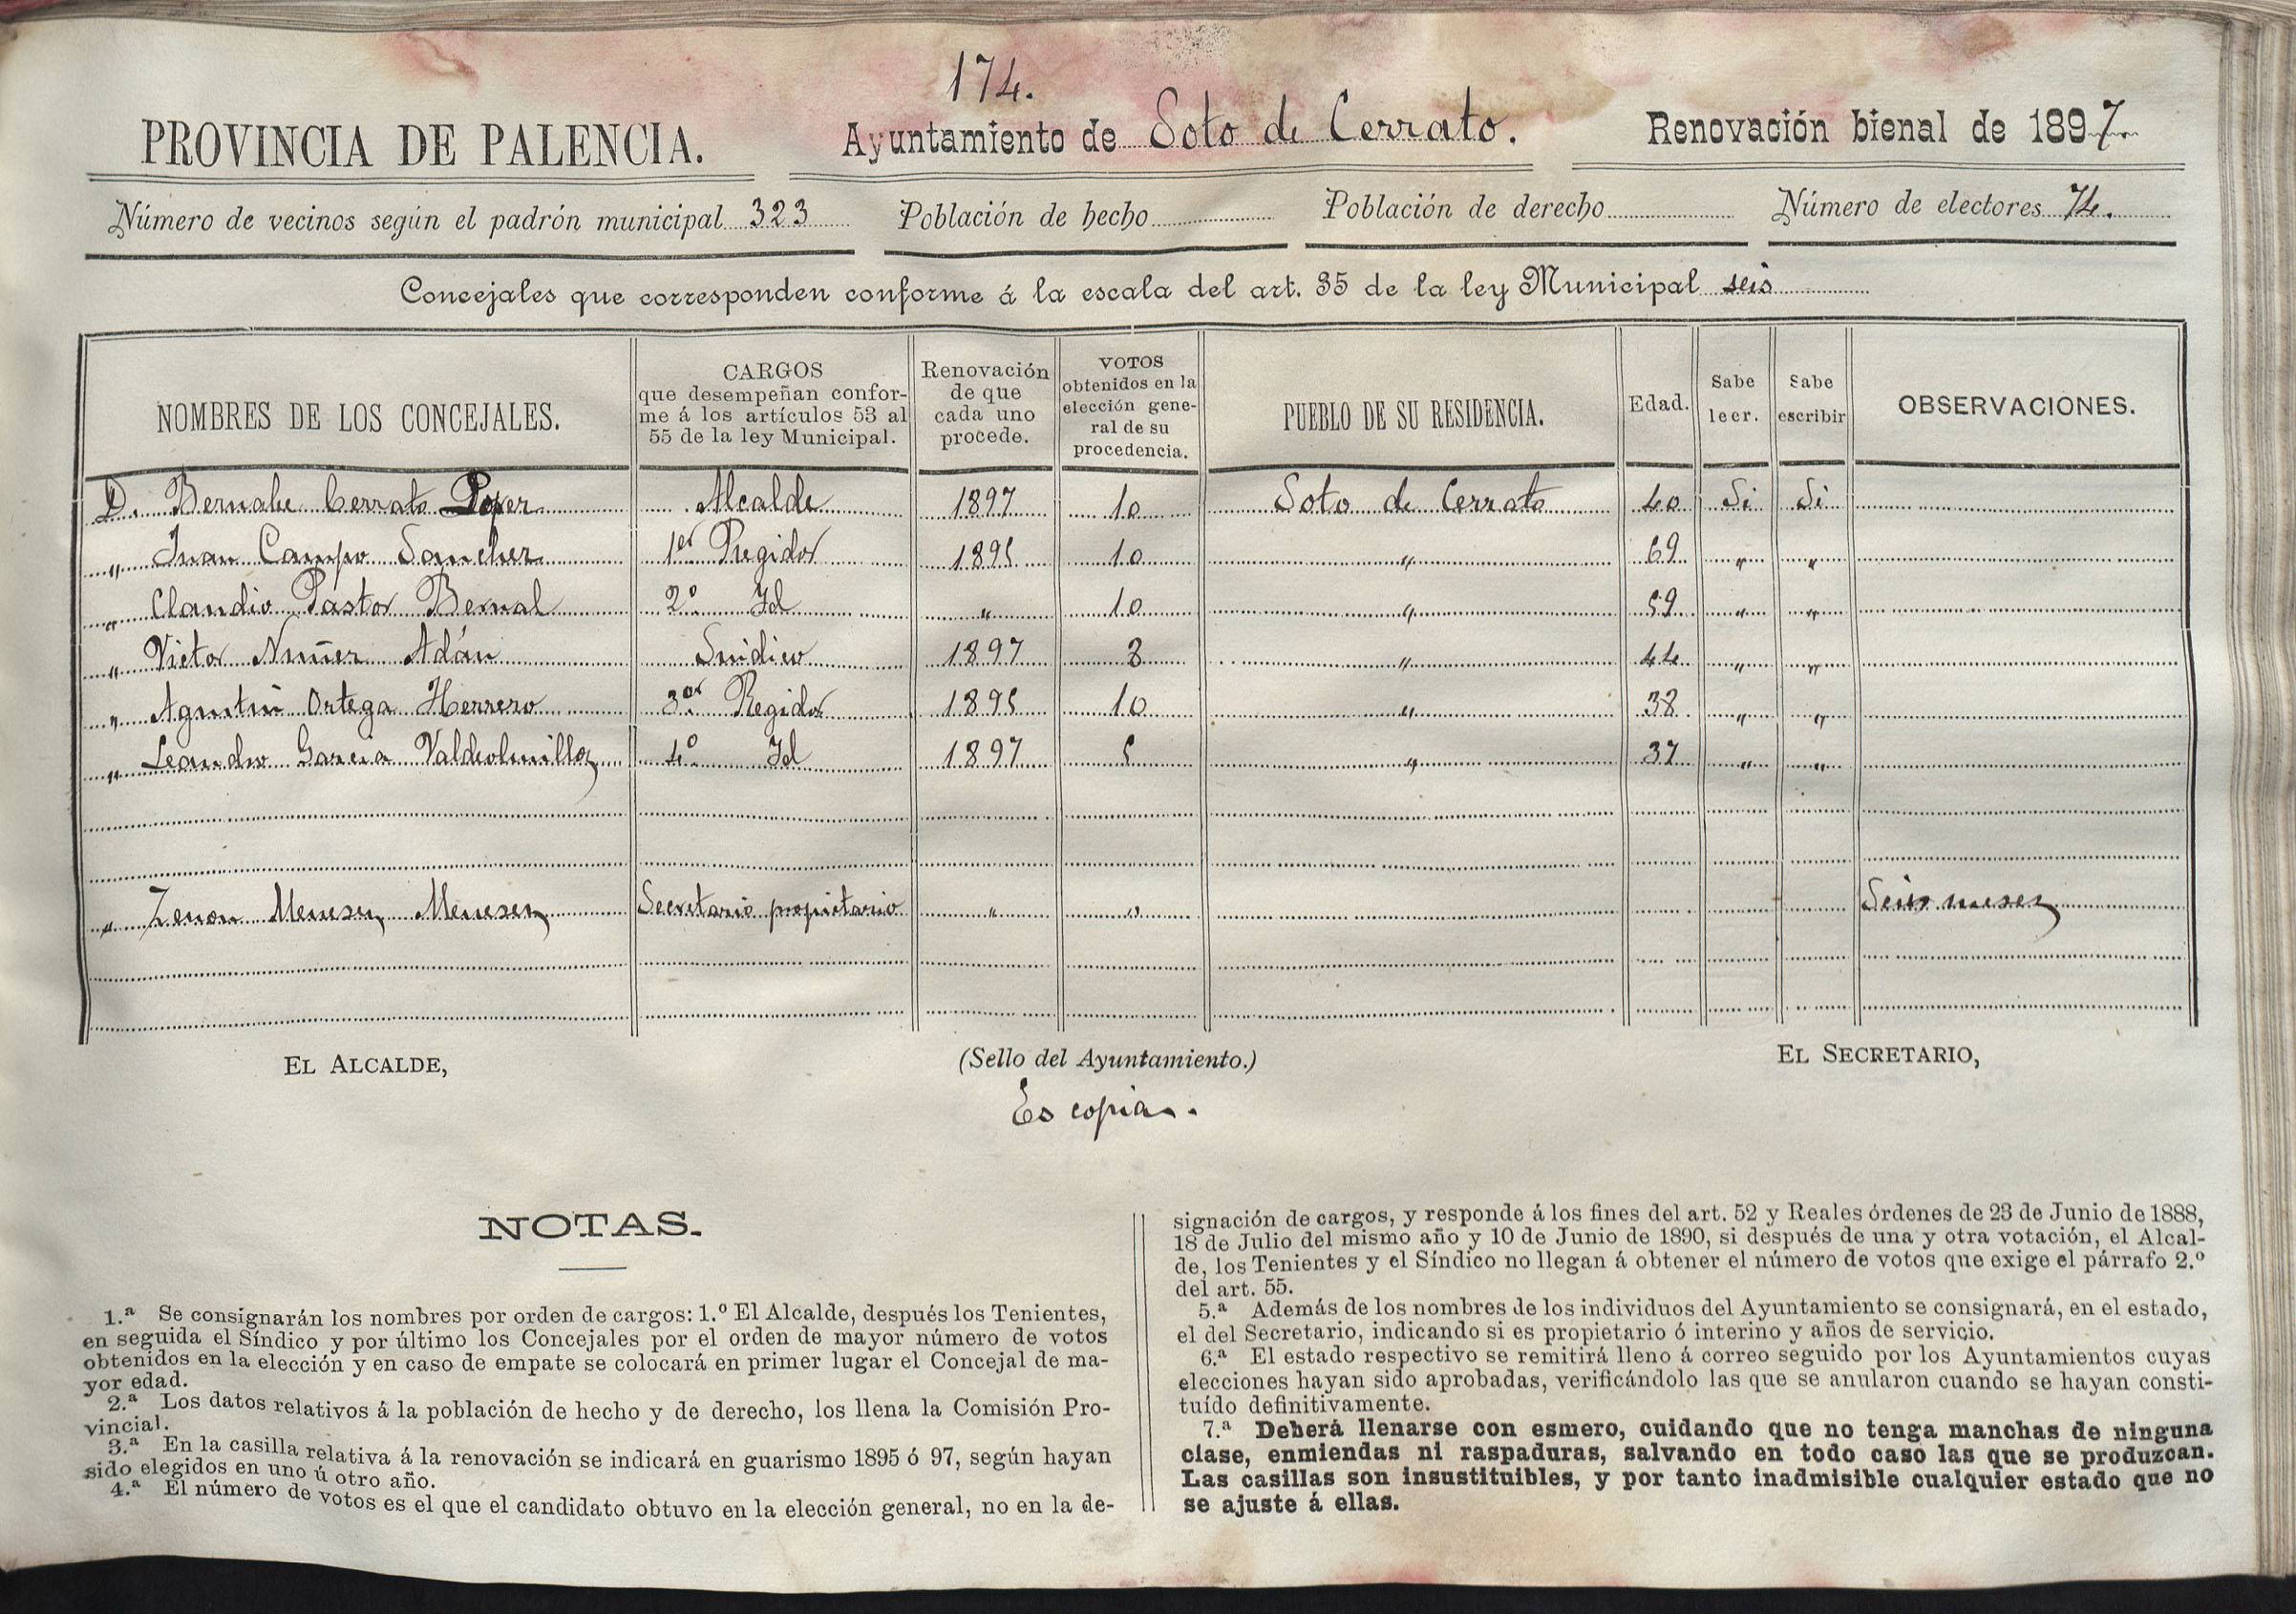 174.
PROVINCIA DE PALENCIA. Ayuntamiento de Soto de Cerrato. Renovación bienal de 1897
Número de vecinos según el padrón municipal 323 Población de hecho Población de derecho Número de electores 74.
Concejales que corresponden conforme á la escala del art. 35 de la ley Municipal seis
NOMBRES DE LOS CONCEJALES. CARGOS que desempeñan conforme á los artículos 53 al 55 de la ley Municipal. Renovación de que cada uno procede. VOTOS obtenidos en la elección general de su procedencia. PUEBLO DE SU RESIDENCIA. Edad. Sabe leer. Sabe escribir OBSERVACIONES.
D. Bernabe Cerrato Lopez Alcalde 1897 10 Soto de Cerrato 40 Si Si
" Juan Campo Sanchez 1er Regidor 1895 10 " 69 " "
" Claudio Pastor Bernal 2º Id " 10 " 59 " "
" Victor Nuñez Adán Sindico 1897 8 " 44 " "
" Agustin Ortega Herrero 3er Regidor 1895 10 " 38 " "
" Leandro Garcia Valdeolmillos 4º Id 1897 5 " 37 " "
" Zenon Meneses Meneses Secretario propietario " " Seis meses
EL ALCALDE, (Sello del Ayuntamiento.) EL SECRETARIO,
Es copia.
NOTAS.
1.ª Se consignarán los nombres por orden de cargos: 1.º El Alcalde, después los Tenientes,
en seguida el Síndico y por último los Concejales por el orden de mayor número de votos
obtenidos en la elección y en caso de empate se colocará en primer lugar el Concejal de ma-
yor edad.
2.ª Los datos relativos á la población de hecho y de derecho, los llena la Comisión Pro-
vincial.
3.ª En la casilla relativa á la renovación se indicará en guarismo 1895 ó 97, según hayan
sido elegidos en uno ú otro año.
4.ª El número de votos es el que el candidato obtuvo en la elección general, no en la de-
signación de cargos, y responde á los fines del art. 52 y Reales órdenes de 23 de Junio de 1888,
18 de Julio del mismo año y 10 de Junio de 1890, si después de una y otra votación, el Alcal-
de, los Tenientes y el Síndico no llegan á obtener el número de votos que exige el párrafo 2.º
del art. 55.
5.ª Además de los nombres de los individuos del Ayuntamiento se consignará, en el estado,
el del Secretario, indicando si es propietario ó interino y años de servicio.
6.ª El estado respectivo se remitirá lleno á correo seguido por los Ayuntamientos cuyas
elecciones hayan sido aprobadas, verificándolo las que se anularon cuando se hayan consti-
tuído definitivamente.
7.ª Deberá llenarse con esmero, cuidando que no tenga manchas de ninguna
clase, enmiendas ni raspaduras, salvando en todo caso las que se produzcan.
Las casillas son insustituibles, y por tanto inadmisible cualquier estado que no
se ajuste á ellas.